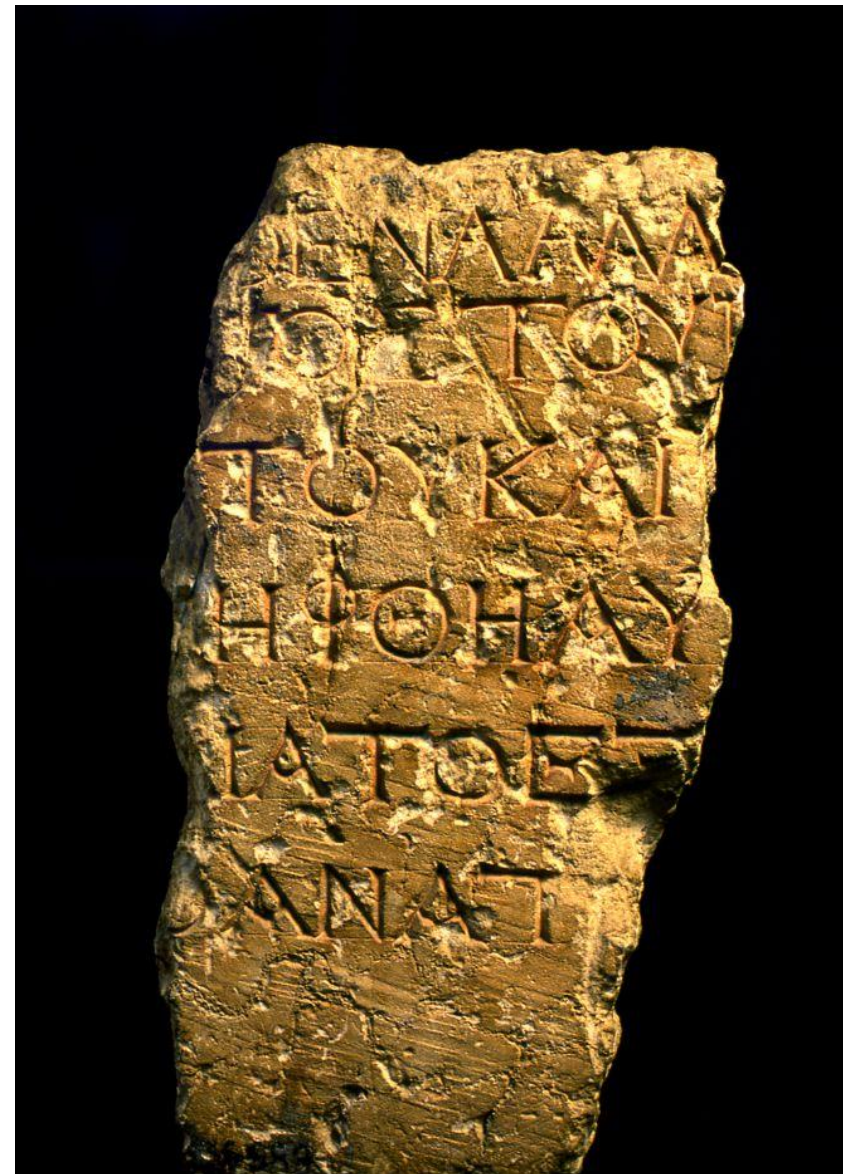 ΕΝΑΑΛΛ
ΟΣΤΟΥΠ
ΤΟΥΚΑΙ
ΗΦΘΗΑΥ
ΙΑΤΟΕΞ
ΑΝΑΤ